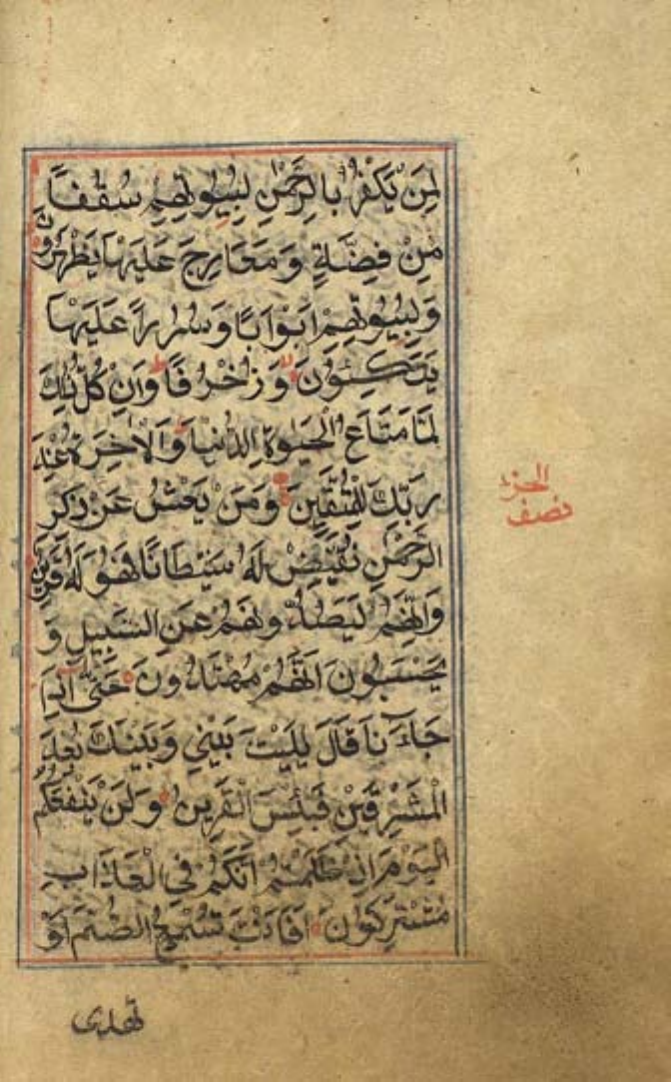 لِمَنْ يَكْفُرُ بِالرَّحْمٰنِ لِبُيُوتِهِمْ سُقُفًا
مِنْ فِضَّةٍ وَمَعَارِجَ عَلَيْهَا يَظْهَرُونَ
وَلِبُيُوتِهِمْ اَبْوَابًا وَسُرُرًا عَلَيْهَا
يَتَّكِـُٔونَ وَزُخْرُفًا وَاِنْ كُلُّ ذٰلِكَ
لَمَّا مَتَاعُ الْحَيٰوةِ الدُّنْيَا وَالْاٰخِرَةُ عِنْدَ
رَبِّكَ لِلْمُتَّقِينَ وَمَنْ يَعْشُ عَنْ ذِكْرِ
الرَّحْمٰنِ نُقَيِّضْ لَهُ شَيْطَانًا فَهُوَ لَهُ قَرِينٌ
وَاِنَّهُمْ لَيَصُدُّونَهُمْ عَنِ السَّبِيلِ وَ
يَحْسَبُونَ اَنَّهُمْ مُهْتَدُونَ حَتّٰى اِذَا
جَآءَنَا قَالَ يٰلَيْتَ بَيْنِي وَبَيْنَكَ بُعْدَ
الْمَشْرِقَيْنِ فَبِئْسَ الْقَرِينُ وَلَنْ يَنْفَعَكُمُ
الْيَوْمَ اِذْ ظَلَمْتُمْ اَنَّكُمْ فِي الْعَذَابِ
مُشْتَرِكُونَ اَفَاَنْتَ تُسْمِعُ الصُّمَّ اَوْ
تهدى
نصف
الحزب